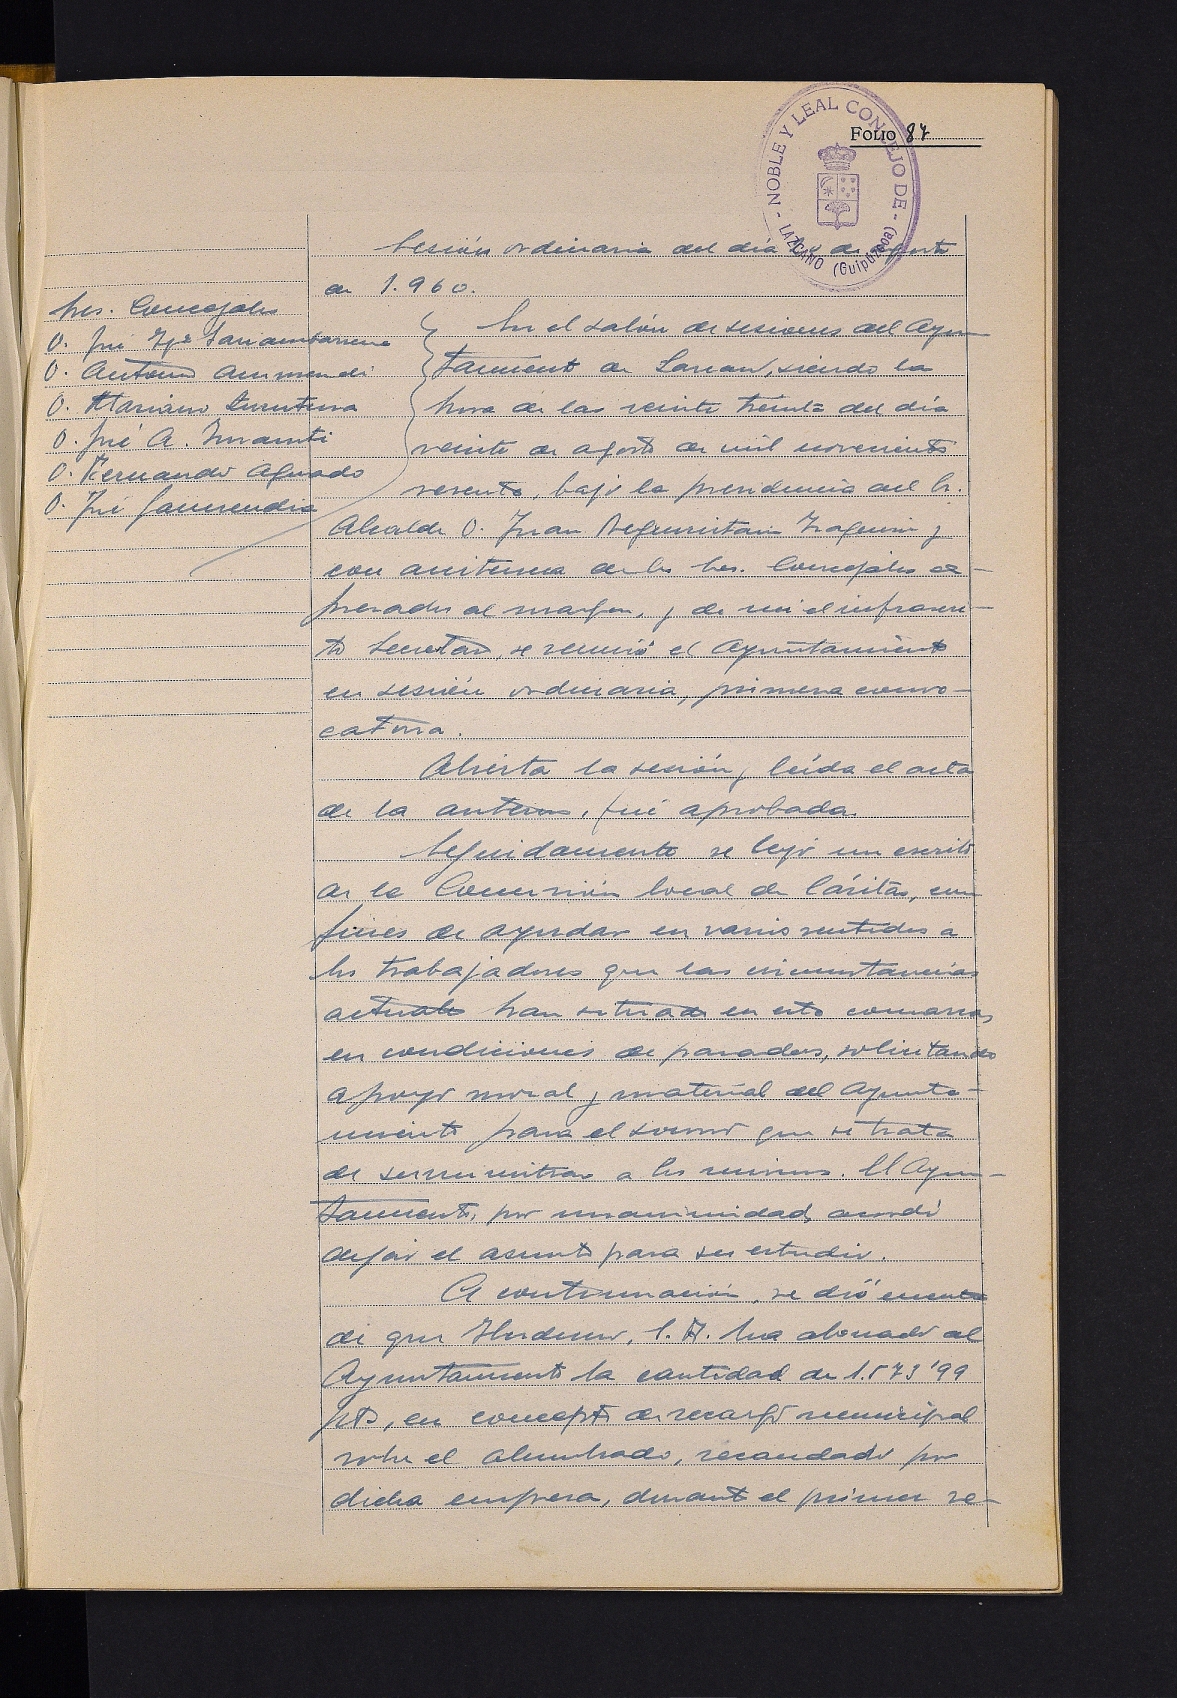 FOLIO 87
NOBLE Y LEAL CONCEJO DE
LAZCANO (Guipúzcoa)
Sesión ordinaria del día de agosto
de 1.960.
Sres. Concejales
D. José Mª
D. Antonio
D. Mariano
D. José A.
D. Fernando Aguado
D. José Garmendia
En el salón de sesiones del Ayun
tamiento de Lazcano, siendo la
hora de las veinte treinta del día
veinte de agosto de mil novecientos
sesenta, bajo la presidencia del Sr.
Alcalde D. Juan Aeguiristain y
con asistencia de los Sres. Concejales ex-
presados al margen, y de mi el infrascri-
to Secretario, se reunió el Ayuntamiento
en sesión ordinaria, primera convo-
catoria.
Abierta la sesión y leída el acta
de la anterior, fué aprobada.
Seguidamente se leyó un escrito
de la Comisión local de Cáritas, con
fines de ayudar en varios sentidos a
los trabajadores que las circunstancias
actuales han situado en esta comarca,
en condiciones de parados, solicitando
apoyo moral y material del Ayunta-
miento para el socorro que se trata
de suministrar a los mismos. El Ayun-
tamiento, por unanimidad, acordó
dejar el asunto para su estudio.
A continuación, se dió cuenta
de que S. A. ha abonado al
Ayuntamiento la cantidad de 1.573'99
pts, en concepto de recargo municipal
sobre el alumbrado, recaudado por
dicha empresa, durante el primer se-